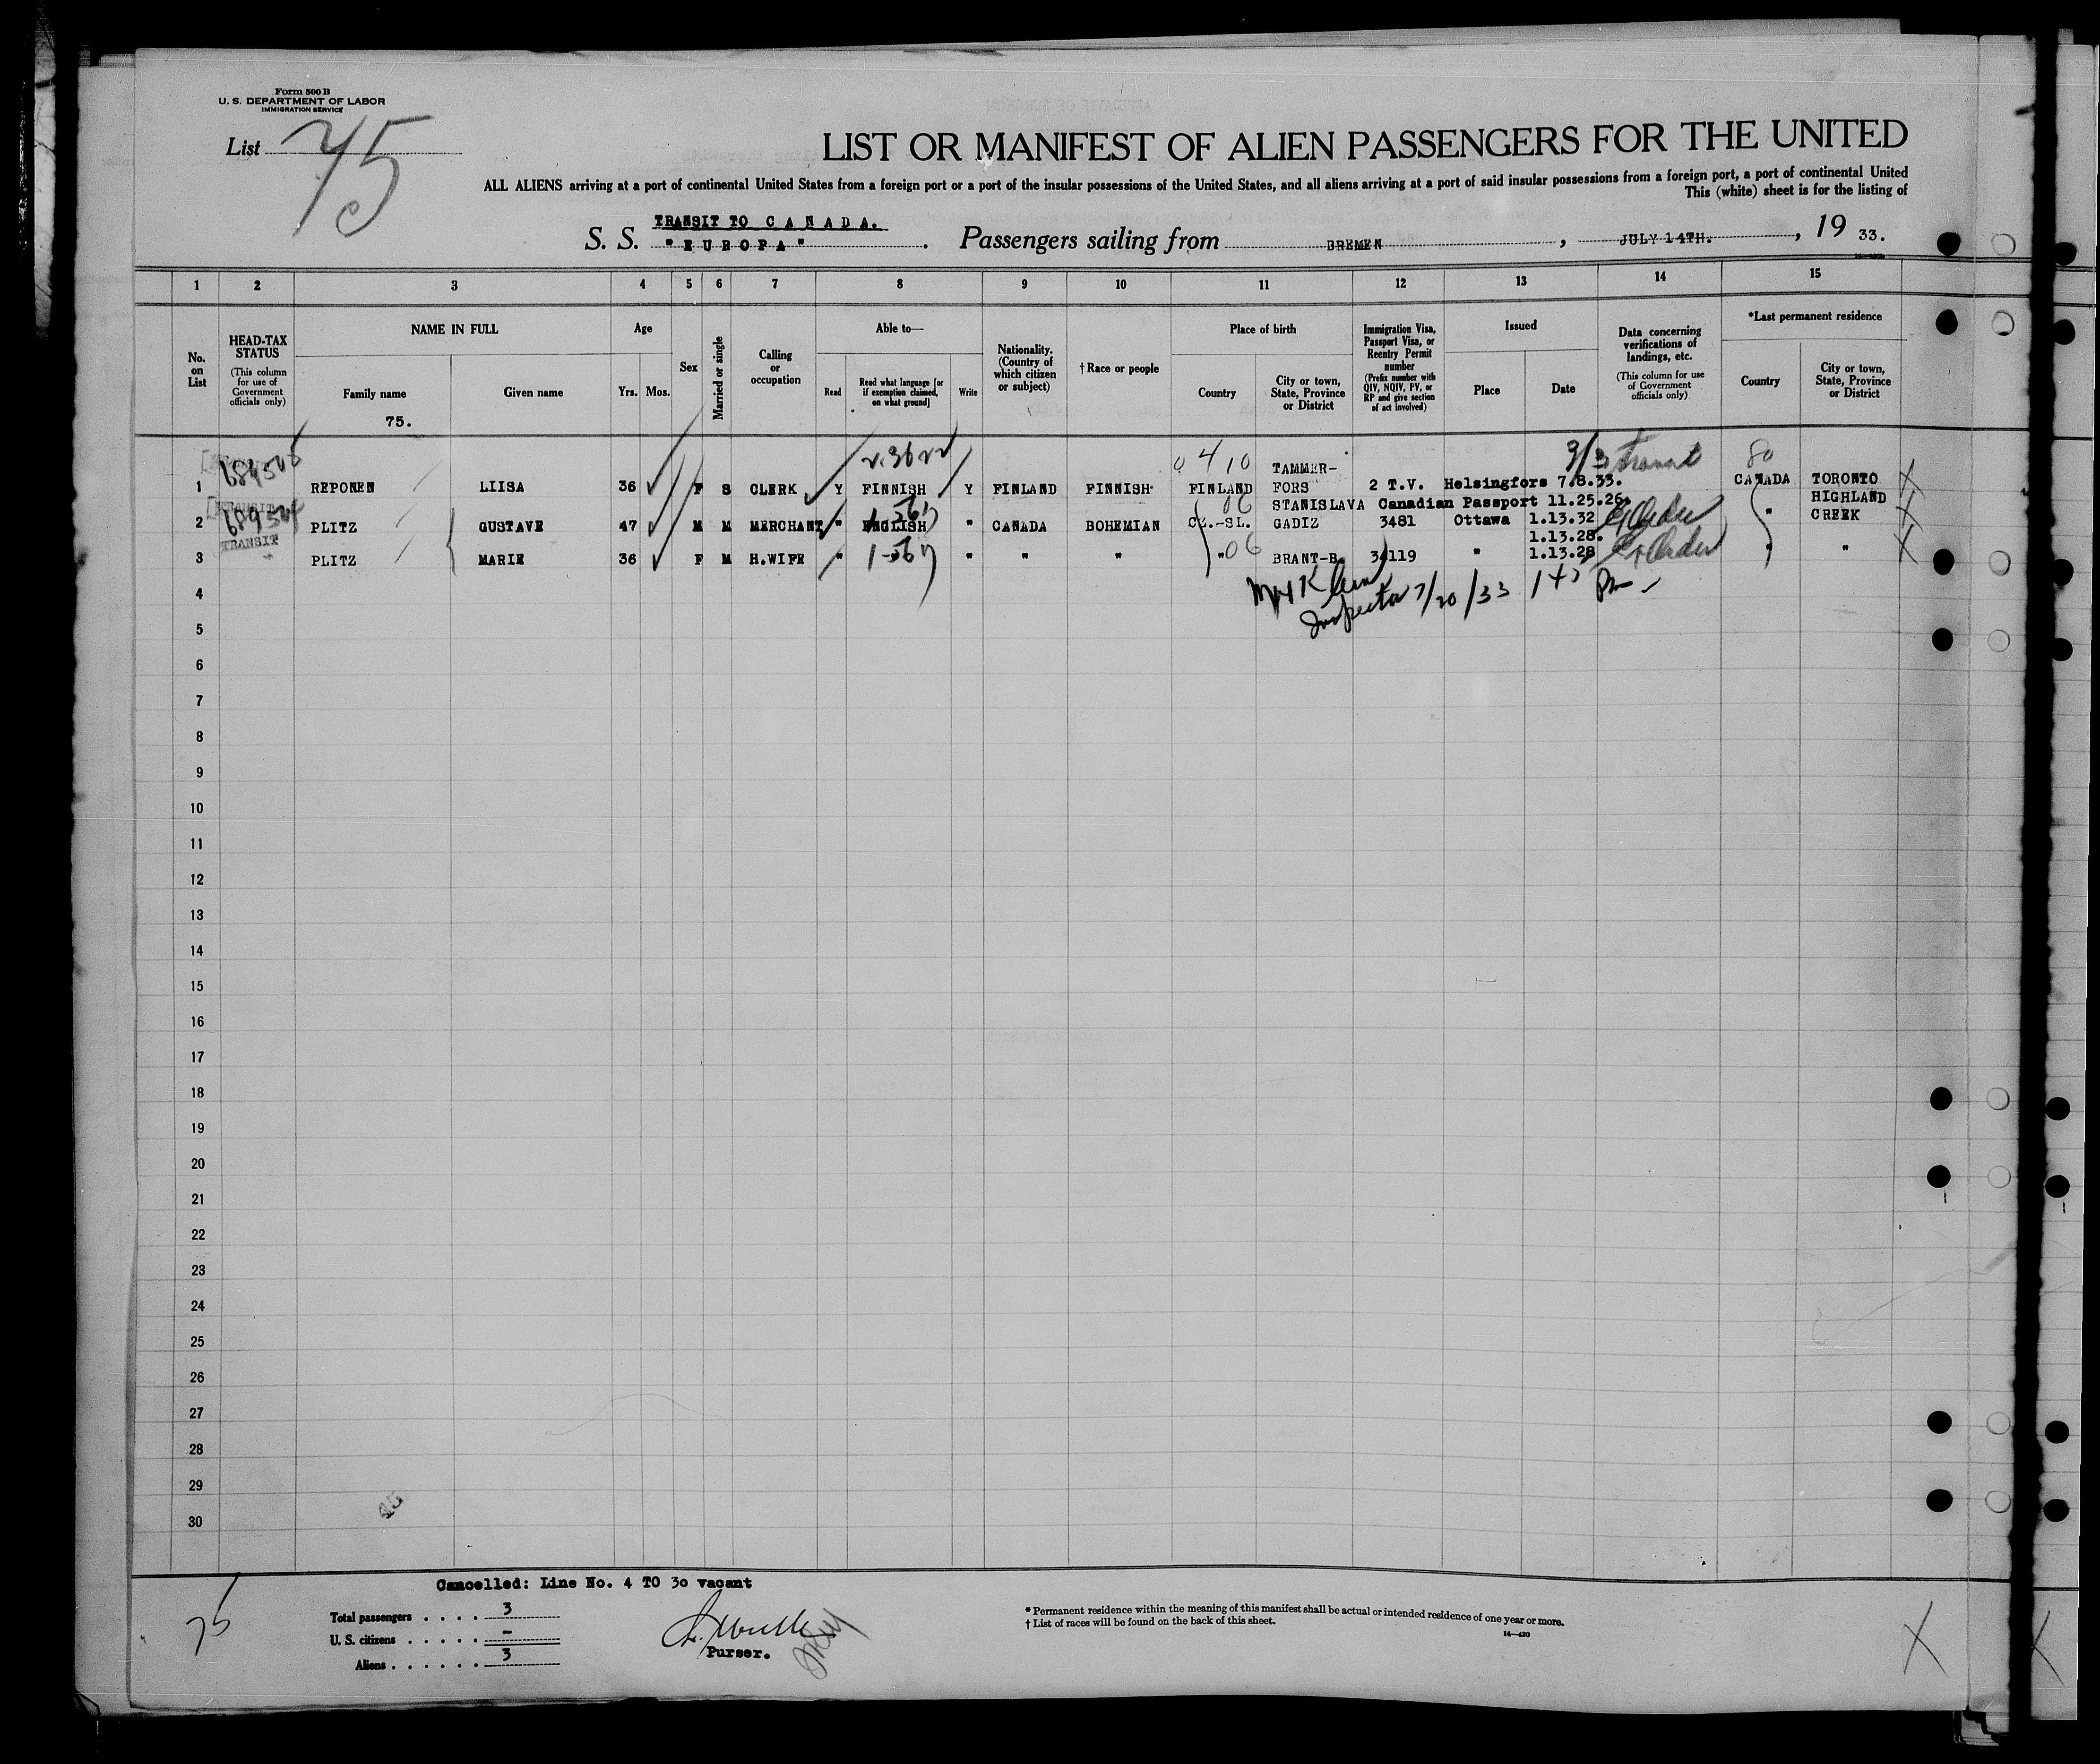 Form 500 B
U. S. DEPARTMENT OF LABOR
IMMIGRATION SERVICE
List 75
LIST OR MANIFEST OF ALIEN PASSENGERS FOR THE UNITED
ALL ALIENS arriving at a port of continental United States from a foreign port or a port of the insular possessions of the United States, and all aliens arriving at a port of said insular possessions from a foreign port, a port of continental United
This (white) sheet is for the listing of
TRANSIT TO CANADA.
S. S. "EUROPA". Passengers sailing from BREMEN, JULY 14TH., 19 33.
1 2 3 4 5 6 7 8 9 10 11 12 13 14 15
No. on List
HEAD-TAX STATUS
(This column for use of Government officials only)
NAME IN FULL
Family name
Given name
75.
Age
Yrs. Mos.
Sex
Married or single
Calling or occupation
Able to—
Read
Read what language [or if exemption claimed, on what ground]
Write
Nationality. (Country of which citizen or subject)
† Race or people
Place of birth
Country
City or town, State, Province or District
Immigration Visa, Passport Visa, or Reentry Permit number
(Prefix number with QIV, NQIV, PV, or RP and give section of act involved)
Issued
Place
Date
Data concerning verifications of landings, etc.
(This column for use of Government officials only)
*Last permanent residence
Country
City or town, State, Province or District
1 REPONEN LIISA 36 F S CLERK Y FINNISH Y FINLAND FINNISH FINLAND TAMMER-FORS 2 T.V. Helsingfors 7.8.33. Transit CANADA TORONTO
2 PLITZ GUSTAVE 47 M M MERCHANT " ENGLISH " CANADA BOHEMIAN CZ.-SL. STANISLAVA GADIZ Canadian Passport 11.25.26. 3481 Ottawa 1.13.32 " HIGHLAND CREEK
TRANSIT
3 PLITZ MARIE 36 F M H.WIFE " " " " " BRANT-B. 34119 " 1.13.28. 1.13.28 " "
4
Inspector 7/20/33
5
6
7
8
9
10
11
12
13
14
15
16
17
18
19
20
21
22
23
24
25
26
27
28
29
30
Cancelled: Line No. 4 TO 30 vacant
75
Total passengers . . . . 3
U. S. citizens . . . . . –
Aliens . . . . . . 3
Purser.
* Permanent residence within the meaning of this manifest shall be actual or intended residence of one year or more.
† List of races will be found on the back of this sheet.
14—420